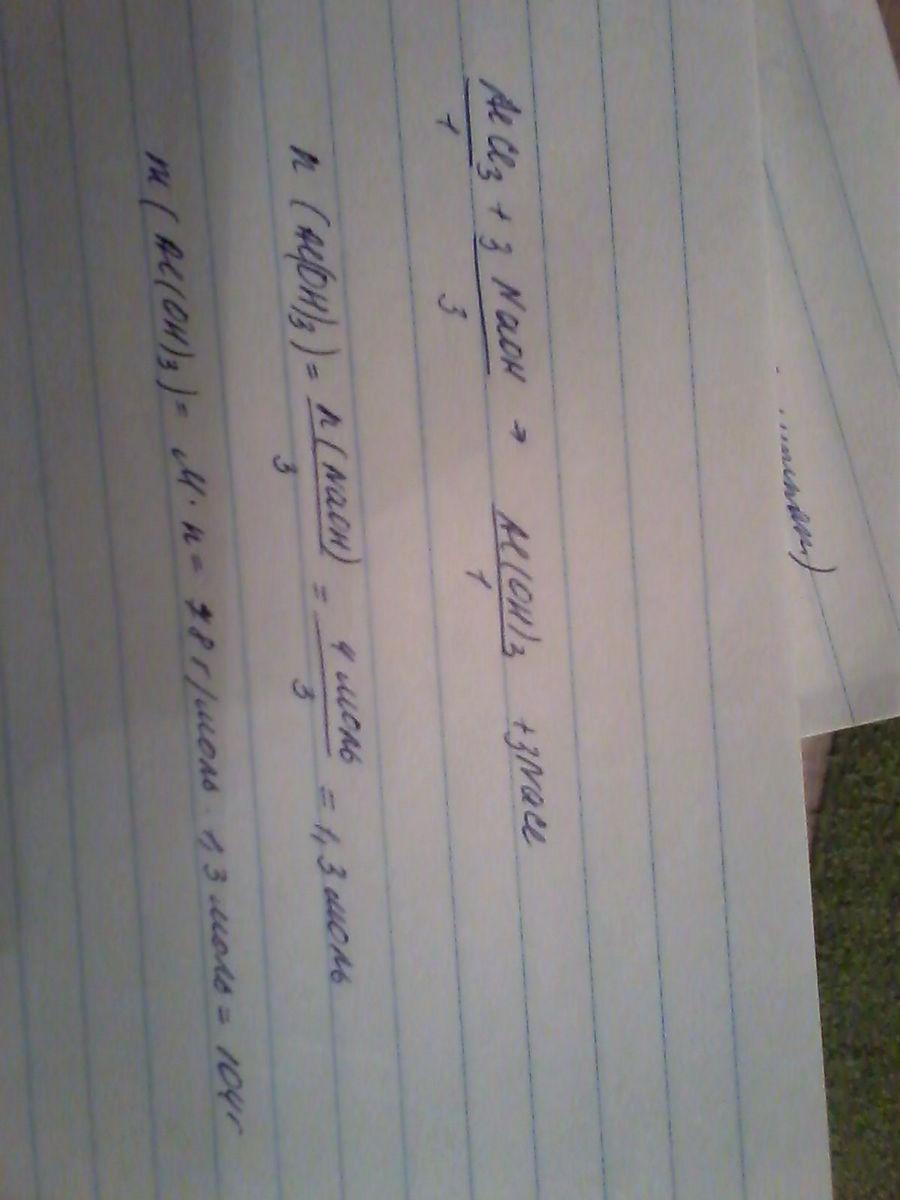 AlCl₃ + 3 NaOH → Al(OH)₃ + 3NaCl
1 3 1
n (Al(OH)₃) = n(NaOH) / 3 = 4 моль / 3 = 1,3 моль
m (Al(OH)₃) = M · n = 78 г/моль · 1,3 моль = 104 г